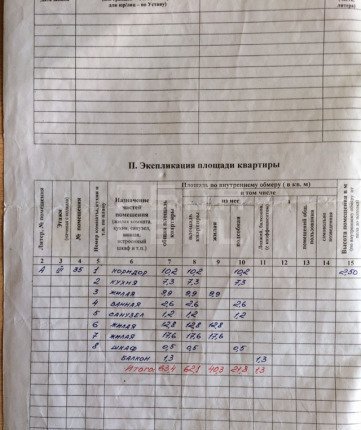 для юр/лиц - по Уставу)
литера)
II. Экспликация площади квартиры
Литер, № помещения
Этаж
№ помещения
Номер комнаты, кухни и т.п. по плану
Назначение частей помещения (жилая комната, кухня, санузел, ванная, встроенный шкаф и т.п.)
Площадь по внутреннему обмеру ( в кв. м)
в том числе
из нее
общая площадь квартиры
площадь квартиры
жилая
подсобная
помещений общ. пользования
Высота помещения в м
2 3 4 5 6 7 8 9 10 11 12 13 14 15
А 95 1 коридор 10,2 10,2 10,2 2,50
2 кухня 7,3 7,3 7,3
3 жилая 9,9 9,9 9,9
4 ванная 2,6 2,6 2,6
5 санузел 1,2 1,2 1,2
6 жилая 12,8 12,8 12,8
7 жилая 17,6 17,6 17,6
8 шкаф 0,5 0,5 0,5
балкон 1,3 1,3
Итого: 63,4 62,1 40,3 21,8 1,3